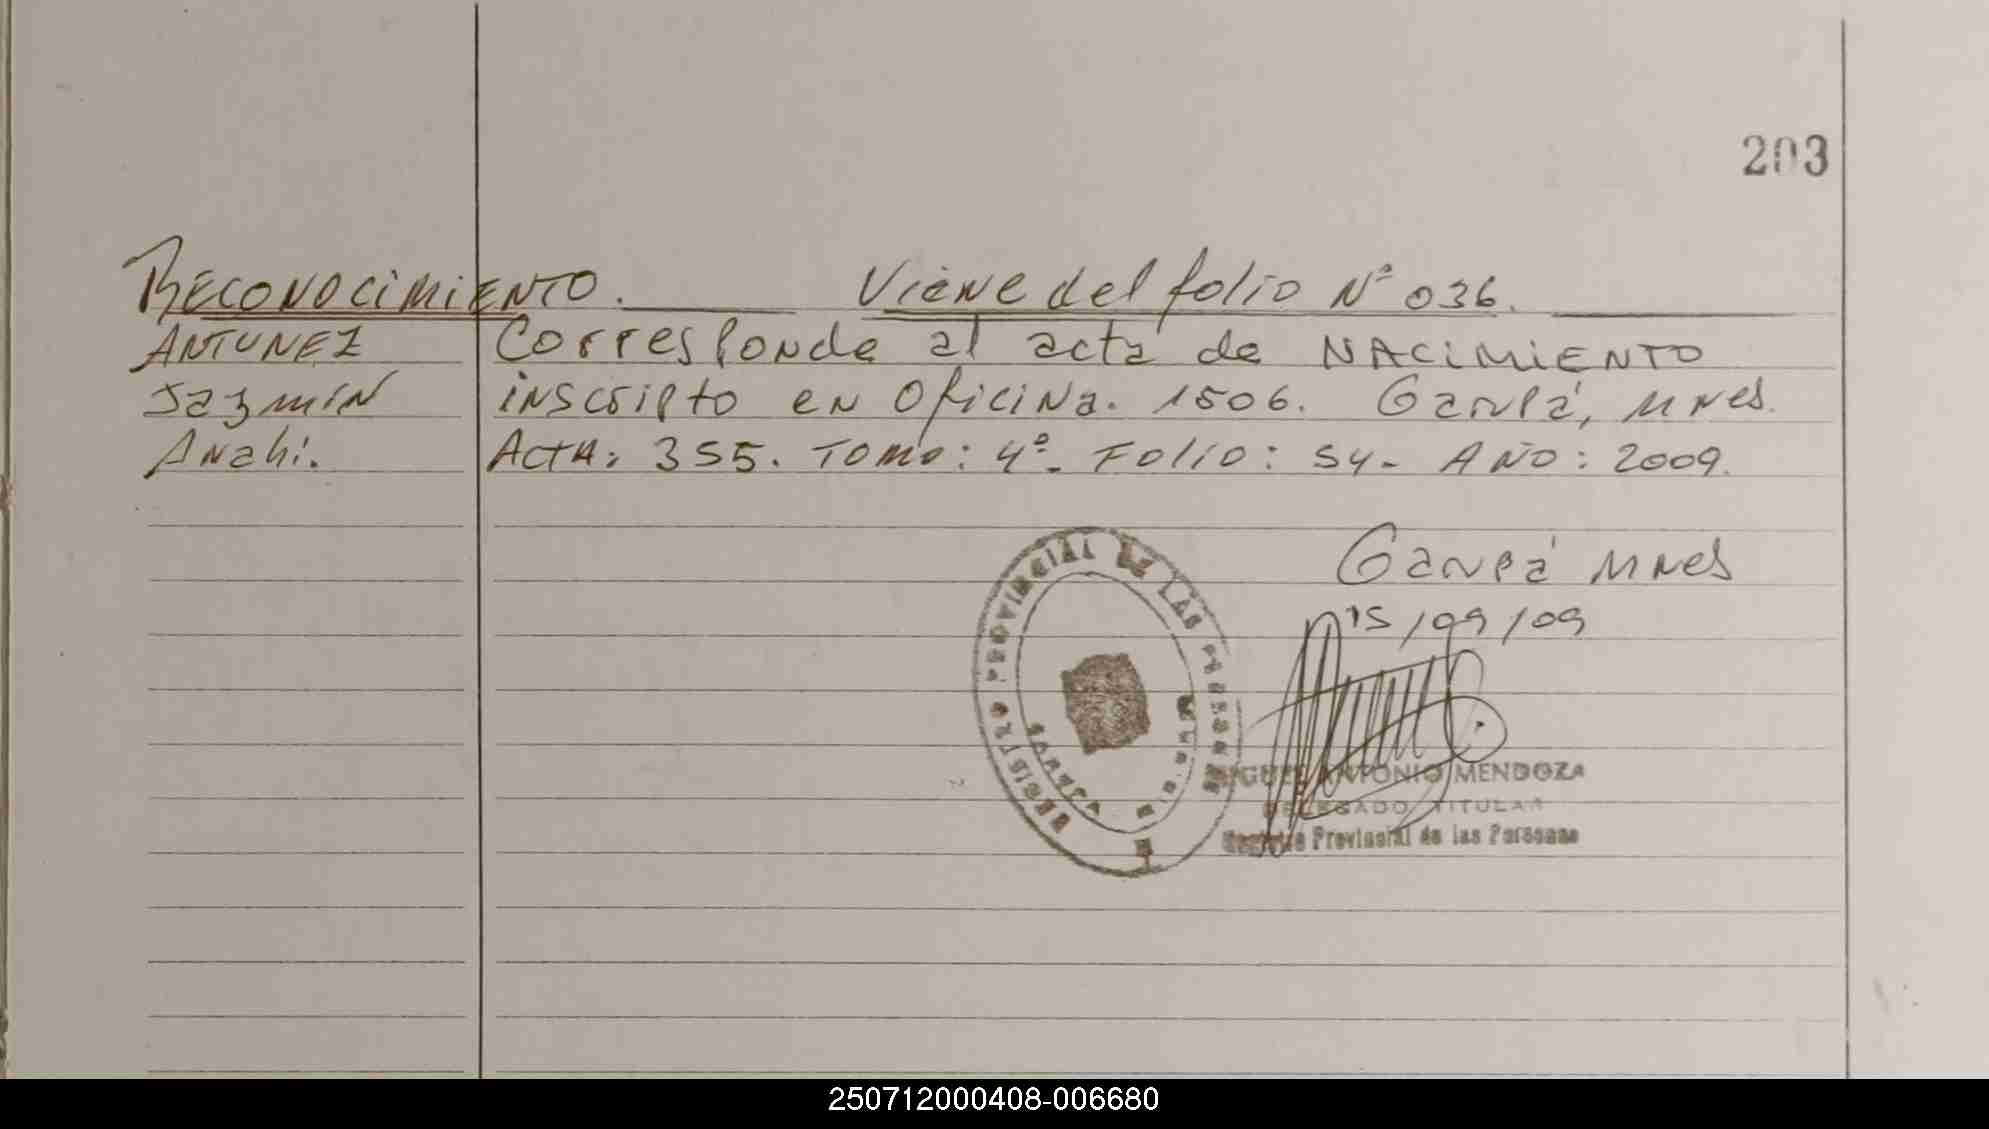 203
Reconocimiento. Viene del folio Nº 036.
ANTUNEZ Corresponde al acta de NACIMIENTO
Jazmín inscripto en Oficina. 1506. Garupá, Mnes.
Anahi. Acta: 355. Tomo: 4º. Folio: 54. Año: 2009.
Garupá Mnes
15/09/09
REGISTRO PROVINCIAL DE LAS PERSONAS
MIGUEL ANTONIO MENDOZA
DELEGADO TITULAR
Registro Provincial de las Personas
250712000408-006680